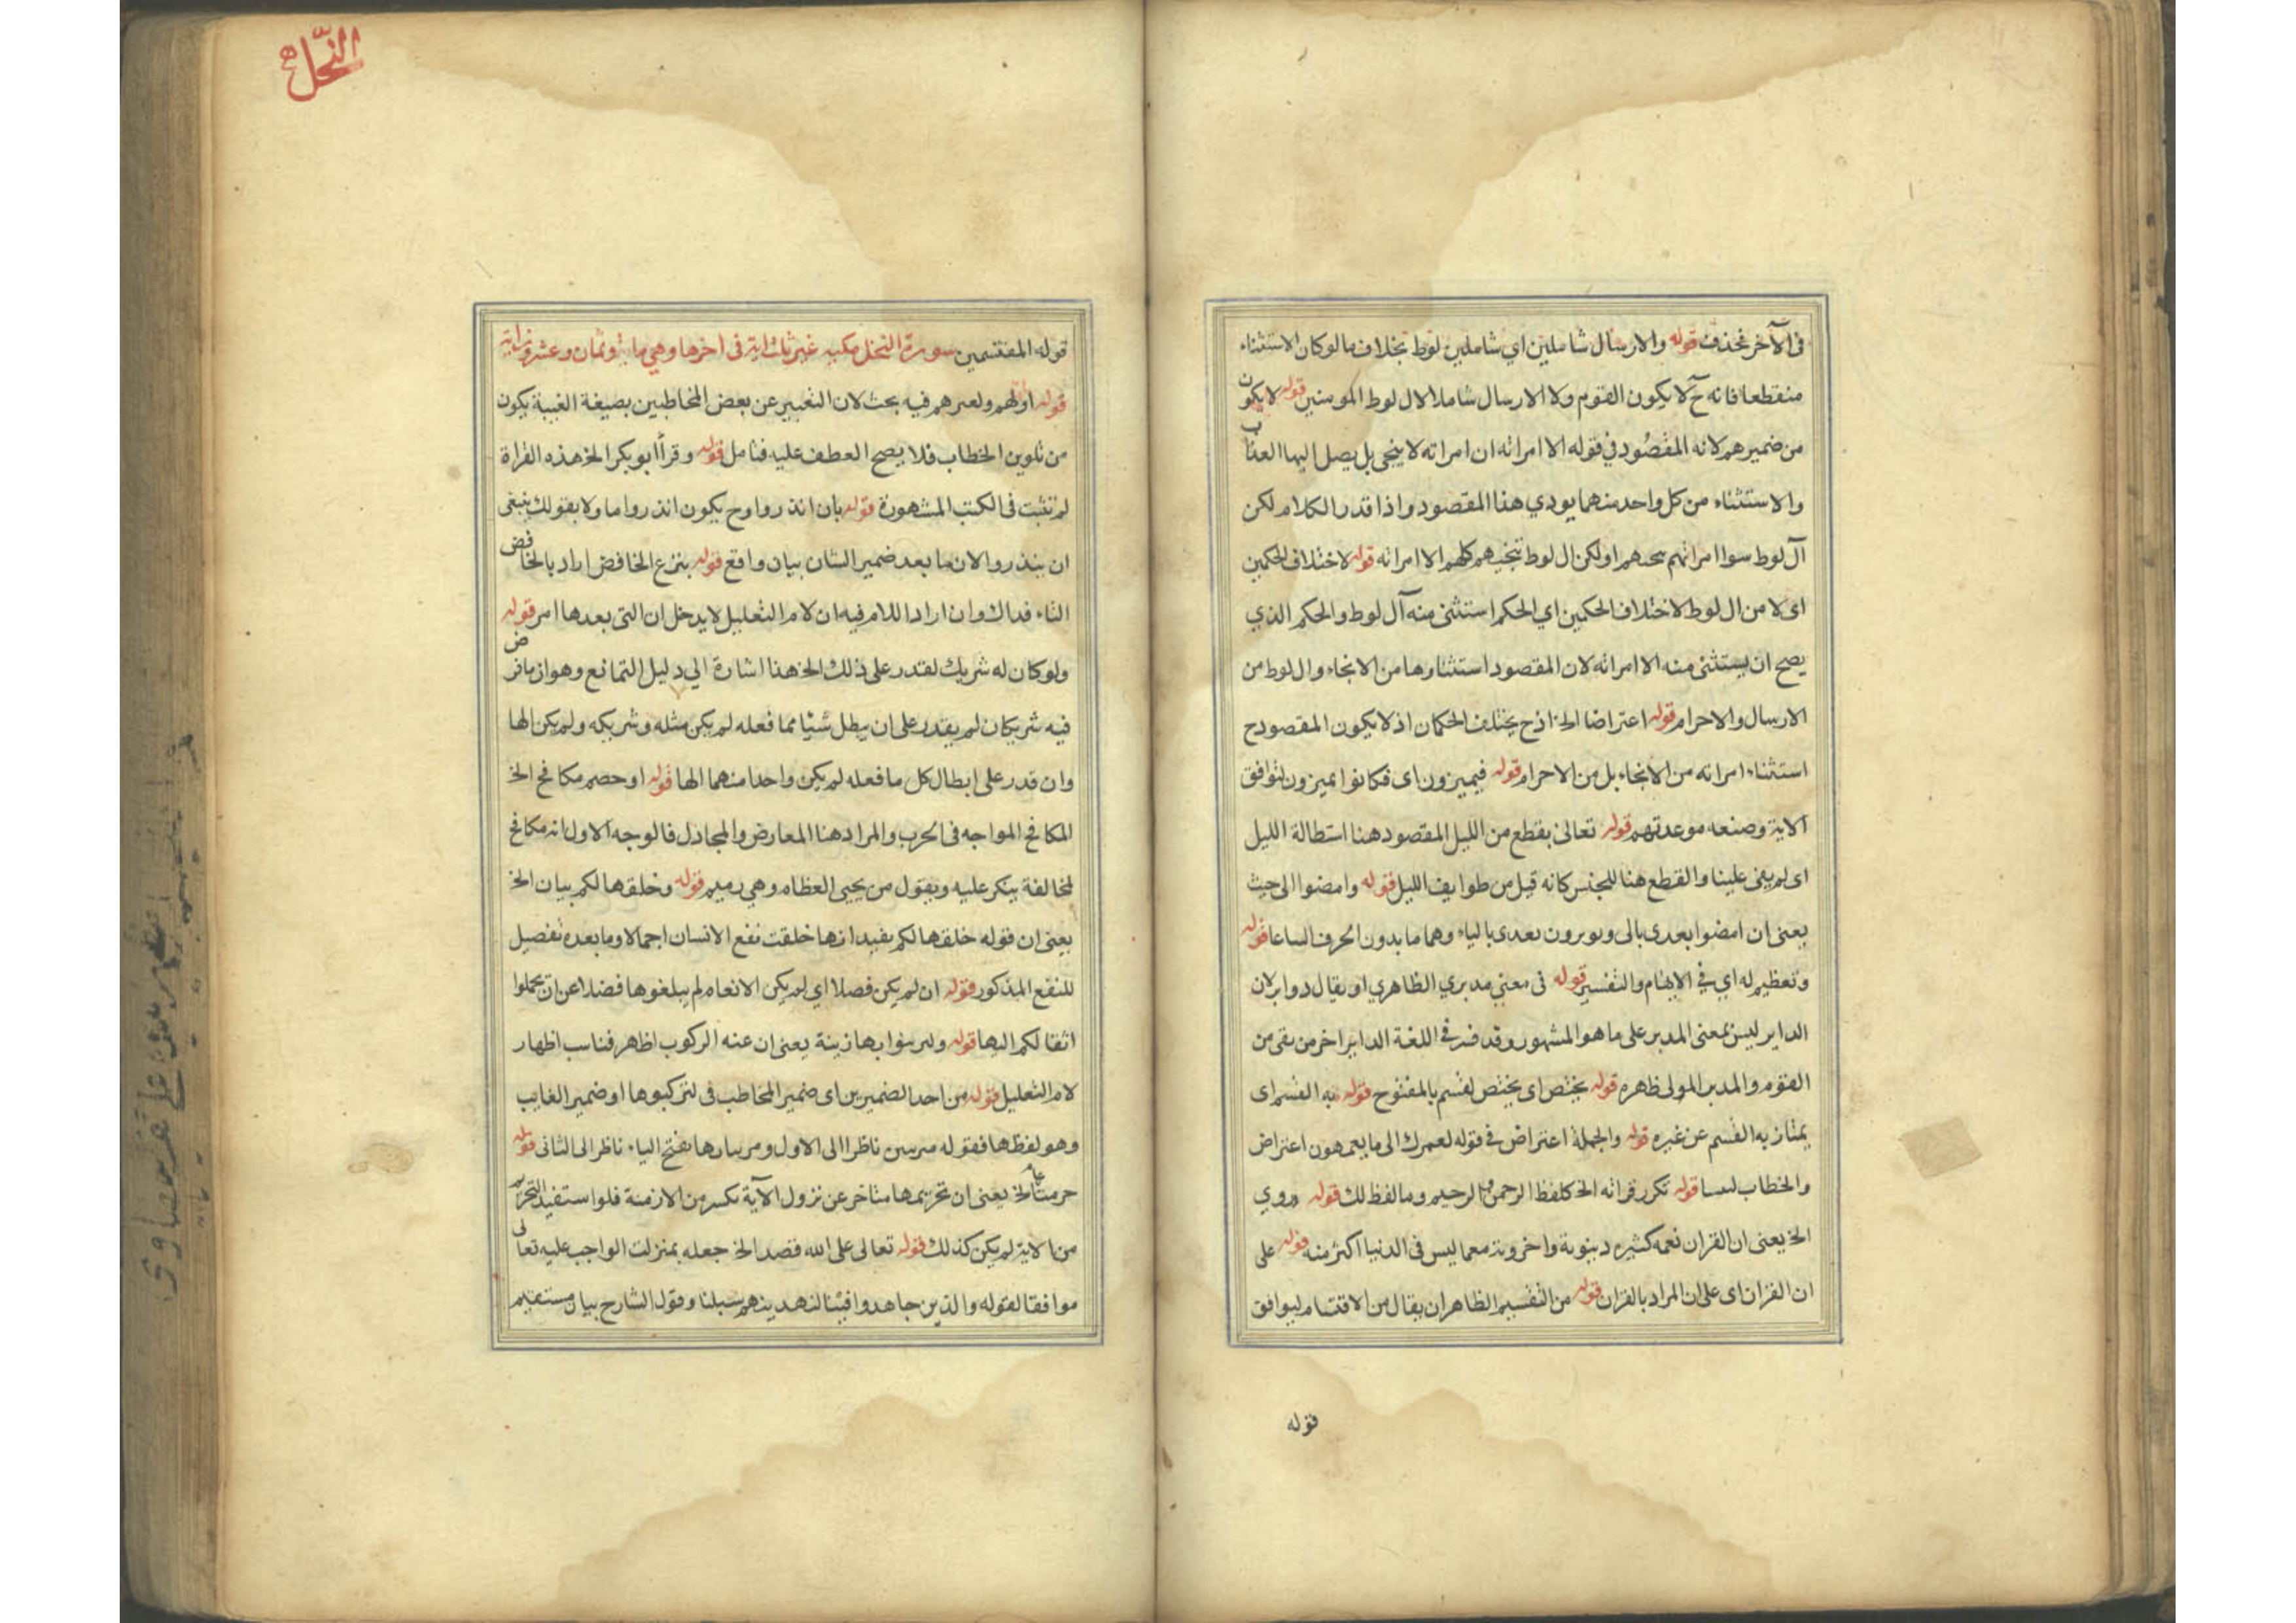 فى الآخر بحذف قوله والارسال شاملين اي شاملين لوط بخلاف ما لو كان الاستثناء
منقطعا فانه ح لا يكون القوم ولا الارسال شاملا لال لوط المومنين قوله لا يكون
من ضميرهم لانه المقصود في قوله الا امراته ان امراته لا ينجى بل يصل اليها العذاب
والاستثناء من كل واحد منهما يودي هذا المقصود واذا قدر الكلام لكن
آل لوط سوا امراتهم او لكن ال لوط ننجيهم كلهم الا امراته قوله لاختلاف الحكمين
اى لا من ال لوط لاختلاف الحكمين اي الحكم استثنى منه آل لوط والحكم الذي
يصح ان يستثنى منه الا امراته لان المقصود استثناوها من الانجاء وال لوط من
الارسال والاحرام قوله اعتراضا الخ اذ ح يختلف الحكمان اذ لا يكون المقصود ح
استثناء امراته من الانجاء بل من الاحرام قوله فيميزون اى فكانوا يميزون لتوافق
الاية وصنعه موعدتهم قوله تعالى بقطع من الليل المقصود هنا استطالة الليل
اى لم يبقى علينا والقطع هنا للجنس كانه قيل من طوايف الليل قوله وامضوا الى حيث
يعنى ان امضوا بعدى بالى وتومرون بعدى بالياء وهما ما بدون الحرف اتساعا قوله
وتعظيم له اي في الابهام والتفسير قوله فى معنى مدبري الظاهري او يقال دوابر لان
الدابر ليس بمعنى المدبر على ما هو المشهور وقد فسر في اللغة الدابر اخر من بقى من
القوم والمدبر المولى ظهره قوله يختص اى يختص لقسم بالمفتوح قوله به القسم اى
يمتاز به القسم عن غيره قوله والجملة اعتراض في قوله لعمرك الى ما يعمهون اعتراض
والخطاب قوله تكرر قراته الخ كلفظ الرحمن والرحيم وما لفظ لك قوله وروي
الخ يعنى ان القران نعمه كثيره دينوية واخروية معما ليس فى الدنيا اكثر منه قوله على
ان القران اى على ان المراد بالقران قوله من التقسيم الظاهر ان يقال من الاقتسام ليوافق
قوله
النحل
قوله المقتسمين سورة النحل مكيه غير ثلث اية فى اخرها وهي ماية وثمان وعشرون اية
قوله اولهم ولغيرهم فيه بحث لان التعبير عن بعض المخاطبين بصيغة الغيبة يكون
من تلوين الخطاب فلا يصح العطف عليه فتامل قوله وقرأ ابو بكر الخ هذه القراة
لم تثبت فى الكتب المشهورة قوله بان انذروا وح يكون انذروا ما ولا بقولك ينبغى
ان ينذروا لان ما بعد ضمير الشان بيان واقع قوله بنزع الخافض اراد بالخافض
الثاء فداك وان اراد اللام فيه ان لام التعليل لا يدخل ان التى بعدها امر قوله
ولو كان له شريك لقدر على ذلك الخ هذا اشارة الي دليل التمانع وهو ان ما فرض
فيه شريكان لم يقدر على ان يبطل شيا مما فعله لم يكن مثله وشريكه ولم يكن الها
وان قدر على ابطال كل ما فعله لم يكن واحدا منهما الها قوله او خصم مكافح الخ
المكافح المواجه فى الحرب والمراد هنا المعارض والمجادل فالوجه الاول انه مكافح
لخالفة ينكر عليه ويقول من يحيى العظام وهي رميم قوله وخلقها لكم بيان الخ
يعنى ان قوله خلقها لكم يفيد انها خلقت نفع الانسان اجمالا وما بعده تفصيل
للنفع المذكور قوله ان لم يكن فصلا اي لم يكن الانعام لم يبلغوها فضلا عن ان تحملوا
اثقالكم اليها قوله ولتزينوا بها زينة يعنى ان عنه الركوب اظهر فناسب اظهار
لام التعليل قوله من احد الضميرين اى ضمير المخاطب فى لتركبوها او ضمير الغايب
وهو لفظها فقوله ناظرا الى الاول بفتح الياء ناظر الى الثانى قوله
حرمت عام الخ يعنى ان تحريمها متاخر عن نزول الآية من الازمنة فلو استفيد التحريم
من الاية لم يكن كذلك قوله تعالى على الله قصد الخ جعله بمنزلت الواجب عليه تعالى
موافقا لقوله والذين جاهدوا فينا لنهدينهم سبلنا وقول الشارح بيان مستقيم